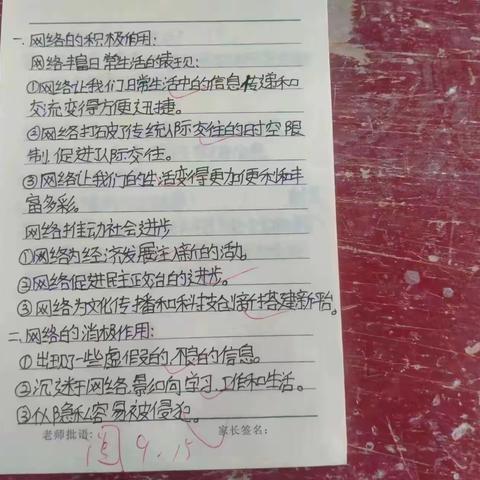 一、网络的积极作用:
网络丰富日常生活的表现:
①网络让我们日常生活中的信息传递和
交流变得方便迅捷。
②网络打破了传统人际交往的时空限
制,促进人际交往。
③网络让我们的生活变得更加便利和丰
富多彩。
网络推动社会进步
①网络为经济发展注入新的活力。
②网络促进民主政治的进步。
③网络为文化传播和科技创新搭建新平台。
二、网络的消极作用:
①出现了一些虚假的,不良的信息。
②沉迷于网络,影响学习,工作和生活。
③个人隐私容易被侵犯。
老师批语: 家长签名:
阅 9.15